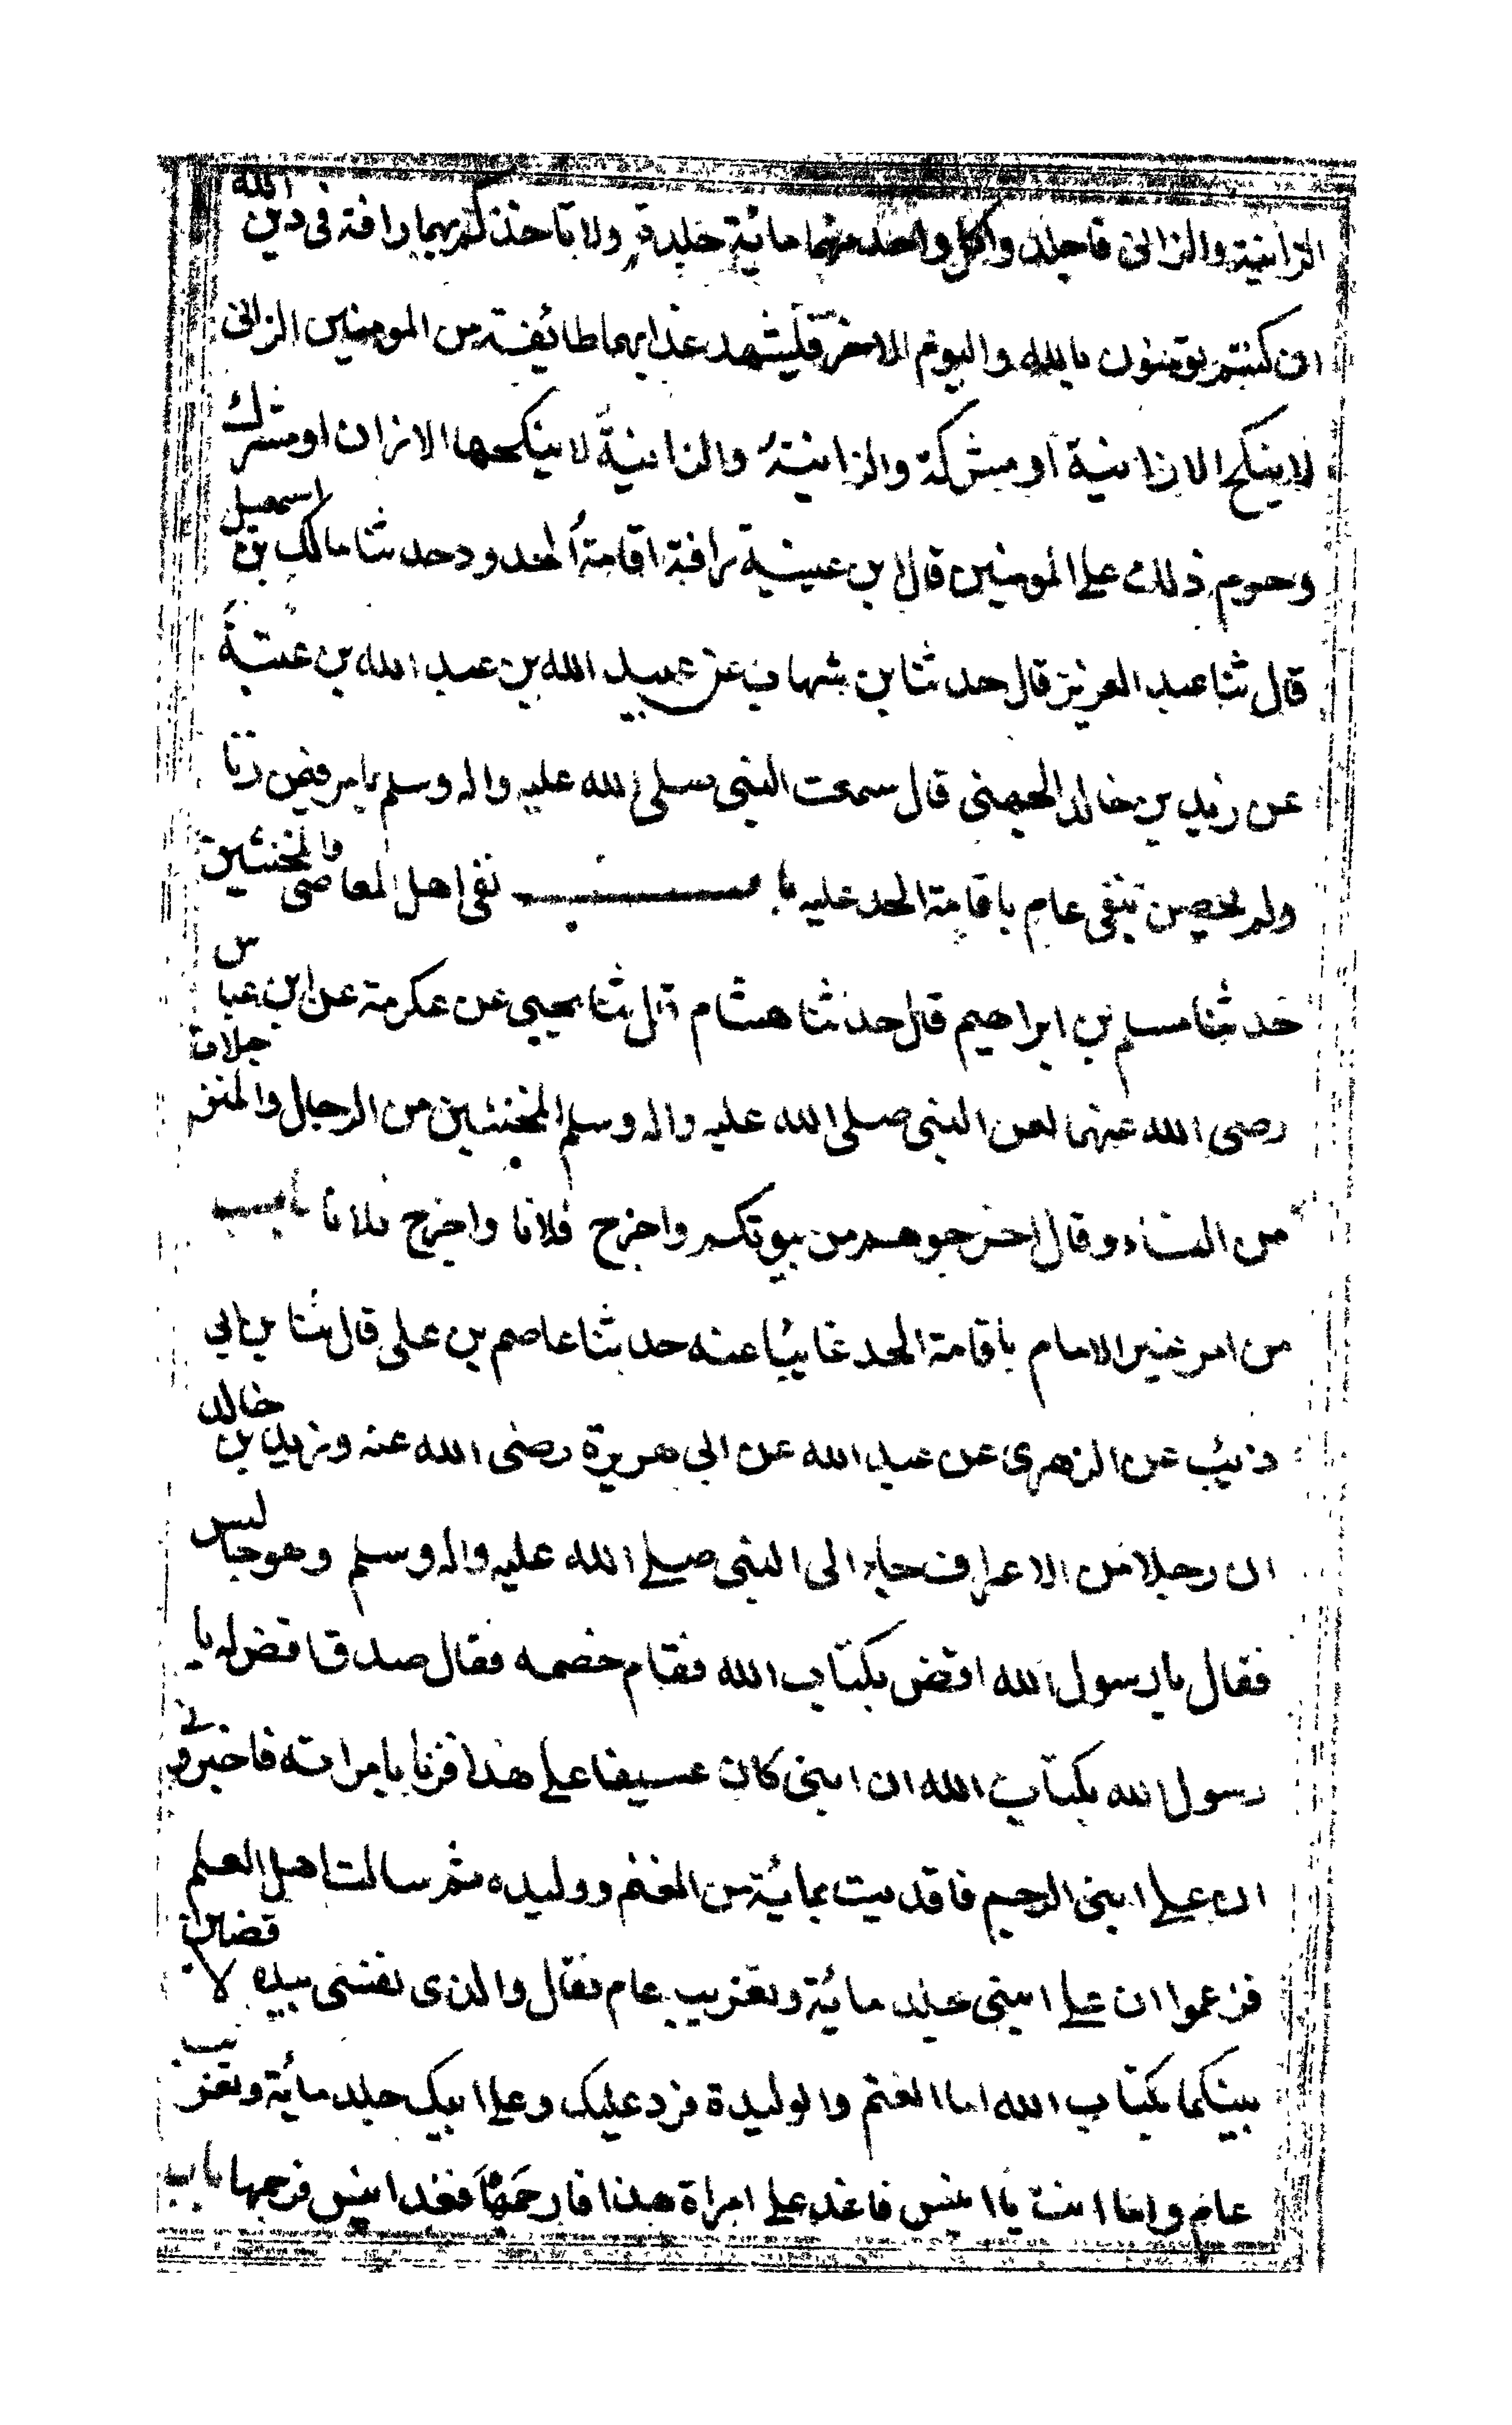 الزانية والزانى فاجلدوا كل واحد منهما مائة جلدة ولا تاخذ كم بهما رافة فى دين الله
ان كنتم تومنون بالله واليوم الاخر فليشهد عذابهما طائفة من المومنين الزانى
لا ينكح الا زانية او مشركة والزانية والزانية لا ينكحها الا زان او مشرك
وحرم ذلك على المومنين قال ابن عيينة رافة اقامة الحدود حدثنا مالك بن اسمعيل
قال ثنا عبد العزيز قال حدثنا بن شهاب عن عبيد الله بن عبد الله بن عتبة
عن زيد بن خالد الجهنى قال سمعت النبى صلى الله عليه واله وسلم يامر فيمن زنا
ولم يحصن بنفى عام باقامة الحد عليه باب نفى اهل المعاصى والمخنثين
حدثنا مسلم بن ابراهيم قال حدثنا هشام قال ثنا يحيى عن عكرمة عن ابن عباس
رضى الله عنهما لعن النبى صلى الله عليه واله وسلم المخنثين من الرجال والمترجلات
من النساء وقال اخرجوهم من بيوتكم واخرج فلانا واخرج فلانا باب
من امر غير الامام باقامة الحد غايبا عنه حدثنا عاصم بن على قال ثنا بن ابى
ذئب عن الزهرى عن عبيد الله عن ابى هريرة رضى الله عنه وزيد بن خالد
ان رجلا من الاعراب جاء الى النبى صلى الله عليه واله وسلم وهو جالس
فقال يا رسول الله اقض بكتاب الله فقام خصمه فقال صدق اقض له يا
رسول الله بكتاب الله ان ابنى كان عسيفا على هذا فزنا بامراته فاخبرونى
ان على ابنى الرجم فافتديت بمائة من الغنم ووليده ثم سالت اهل العلم
فزعموا ان على ابنى جلد مائة وتغريب عام فقال والذى نفسى بيده لاقضين
بينكما بكتاب الله اما الغنم والوليدة فرد عليك وعلى ابنك جلد مائة وتغريب
عام واما انت يا انيس فاغد على امراة هذا فارجمها فغدا انيس فرجمها باب